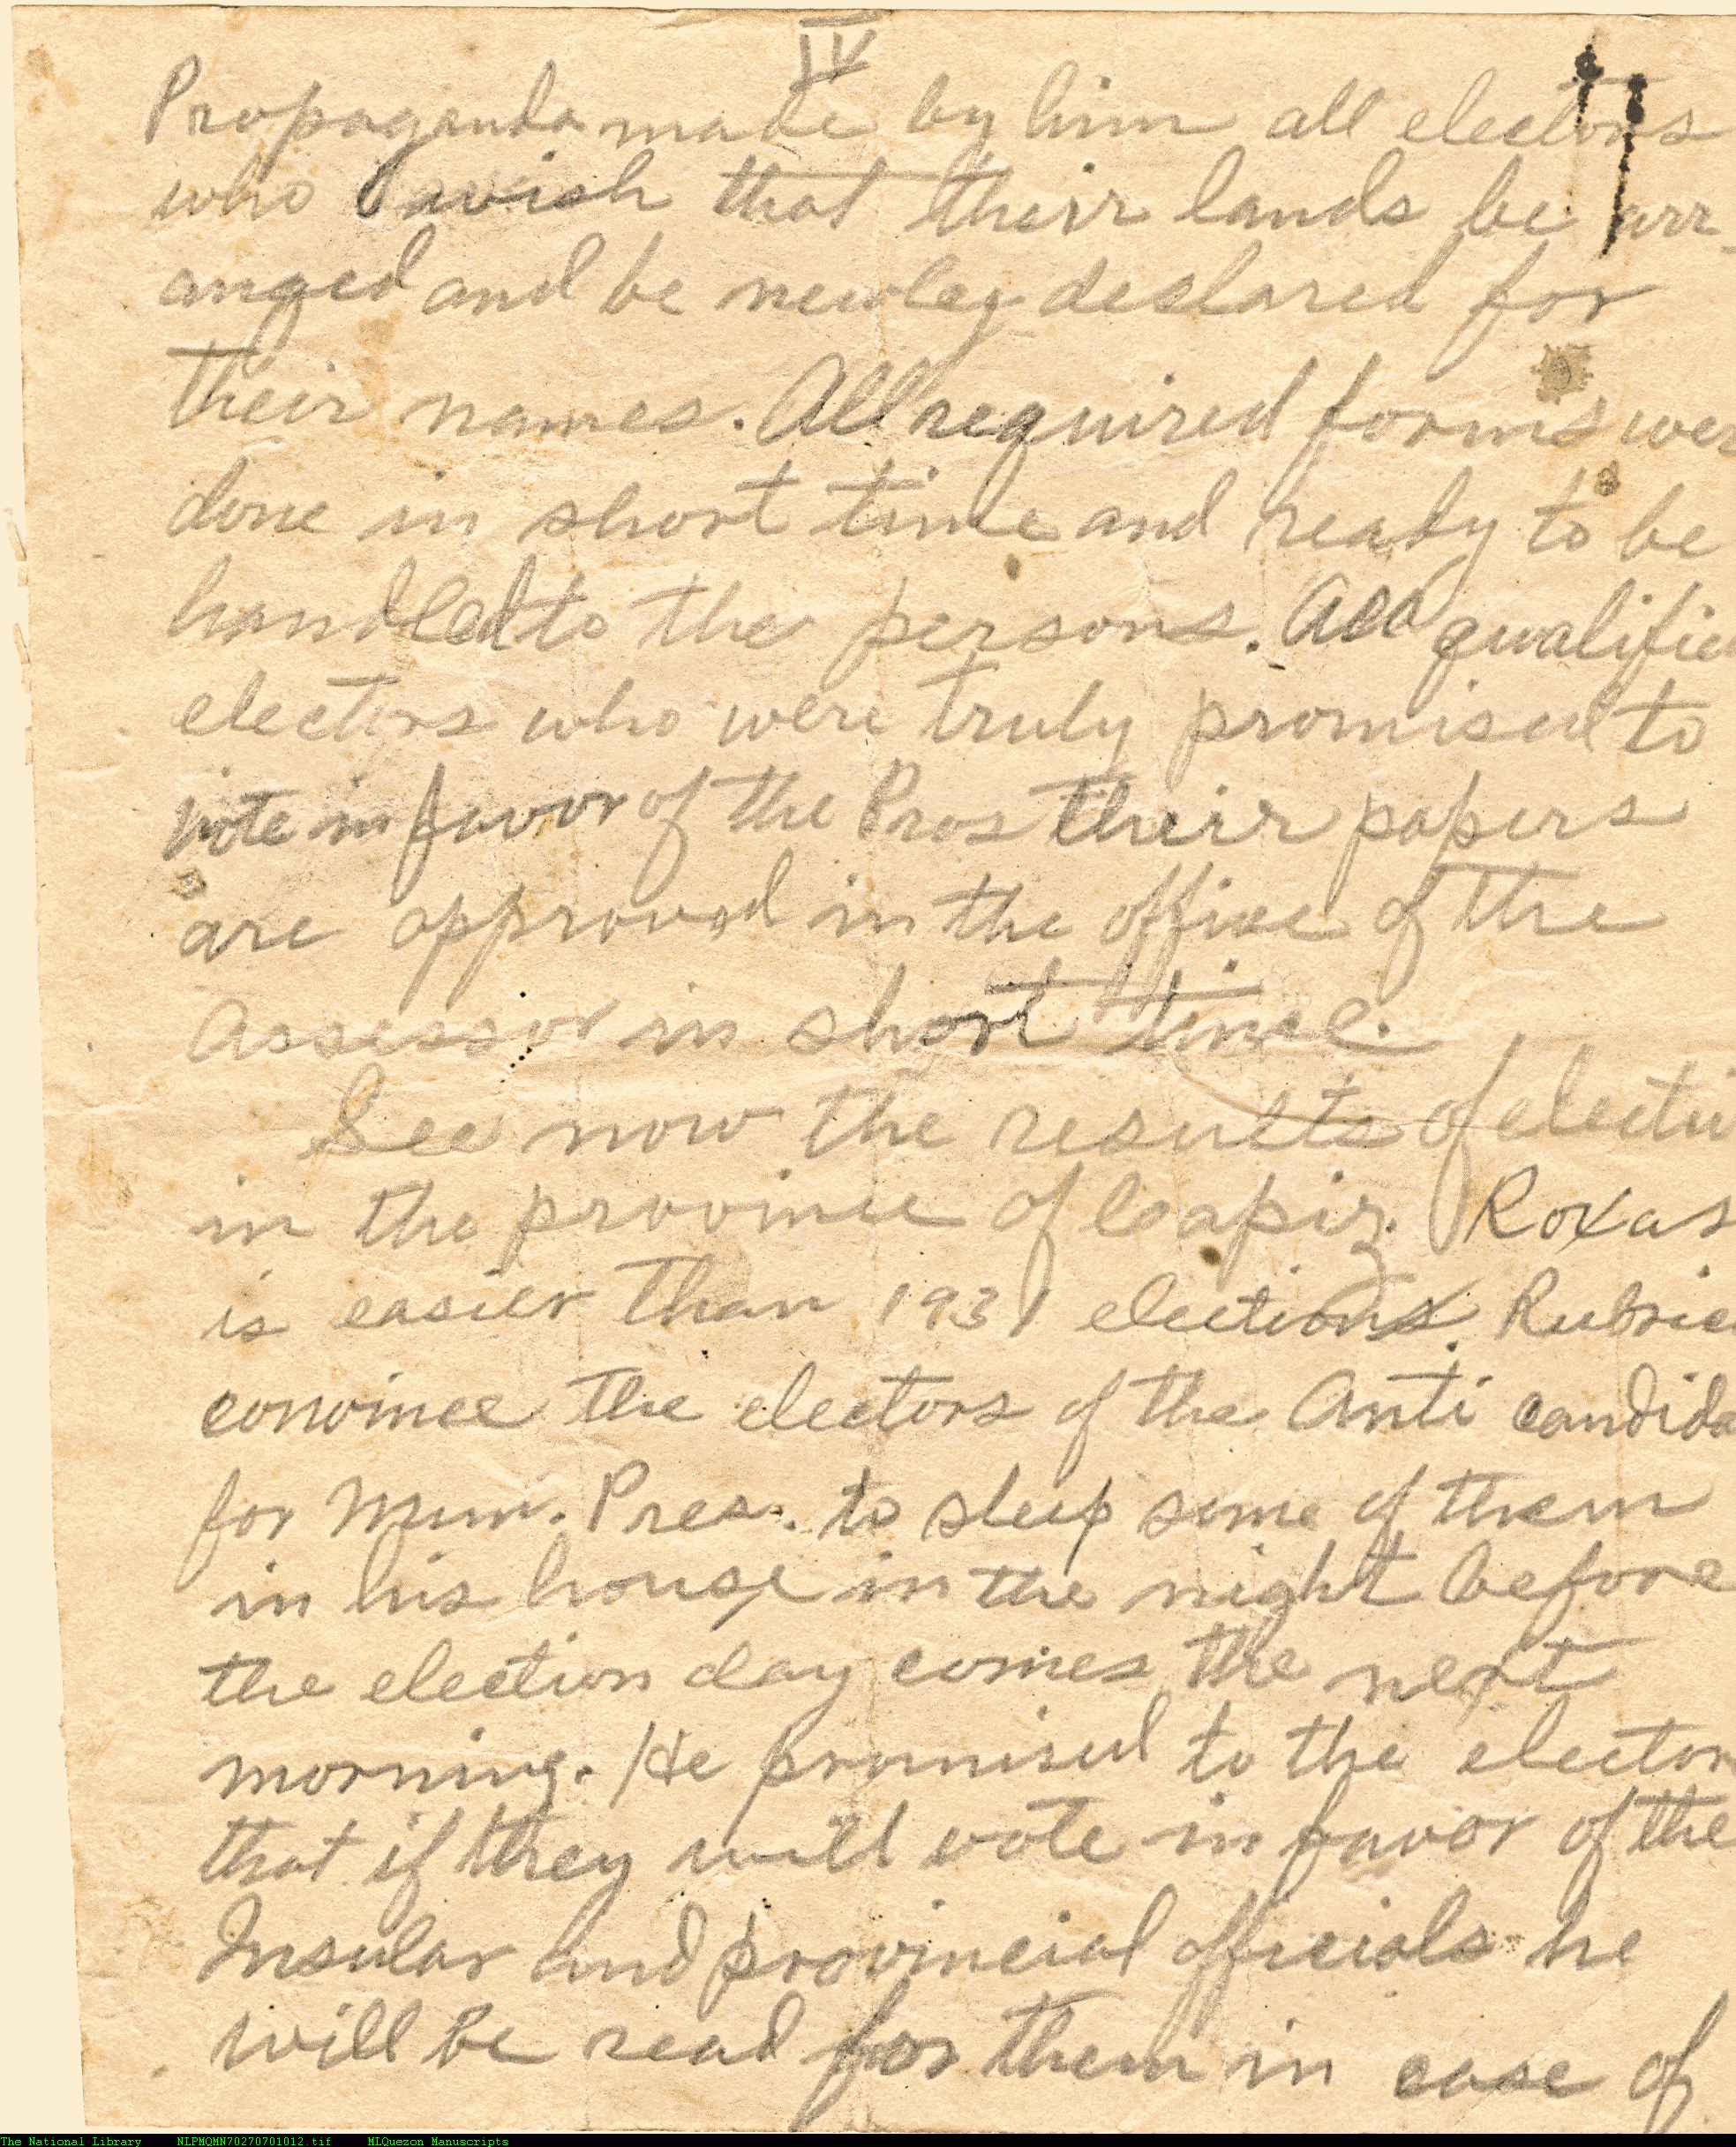 IV
Propaganda made by him all electors
who wish that their lands be arr-
anged and be newley declared for
their names. All required forms wer
done in short time and ready to be
handled to the persons. All qualifie
electors who were truly promised to
vote in favor of the Pros their papers
are approved in the office of the
Assessor in short time.
See now the results of electi
in the province of Capiz. Roxas
is easier than 1931 elections. Rubric
convince the electors of the Anti candida
for Mun. Pres. to sleep some of them
in his house in the night before
the election day comes the next
morning. He promised to the elector
that if they will vote in favor of the
Insular and provincial officials he
will be read for them in case of
The National Library NLPMQMN70270701012.tif MLQuezon Manuscripts